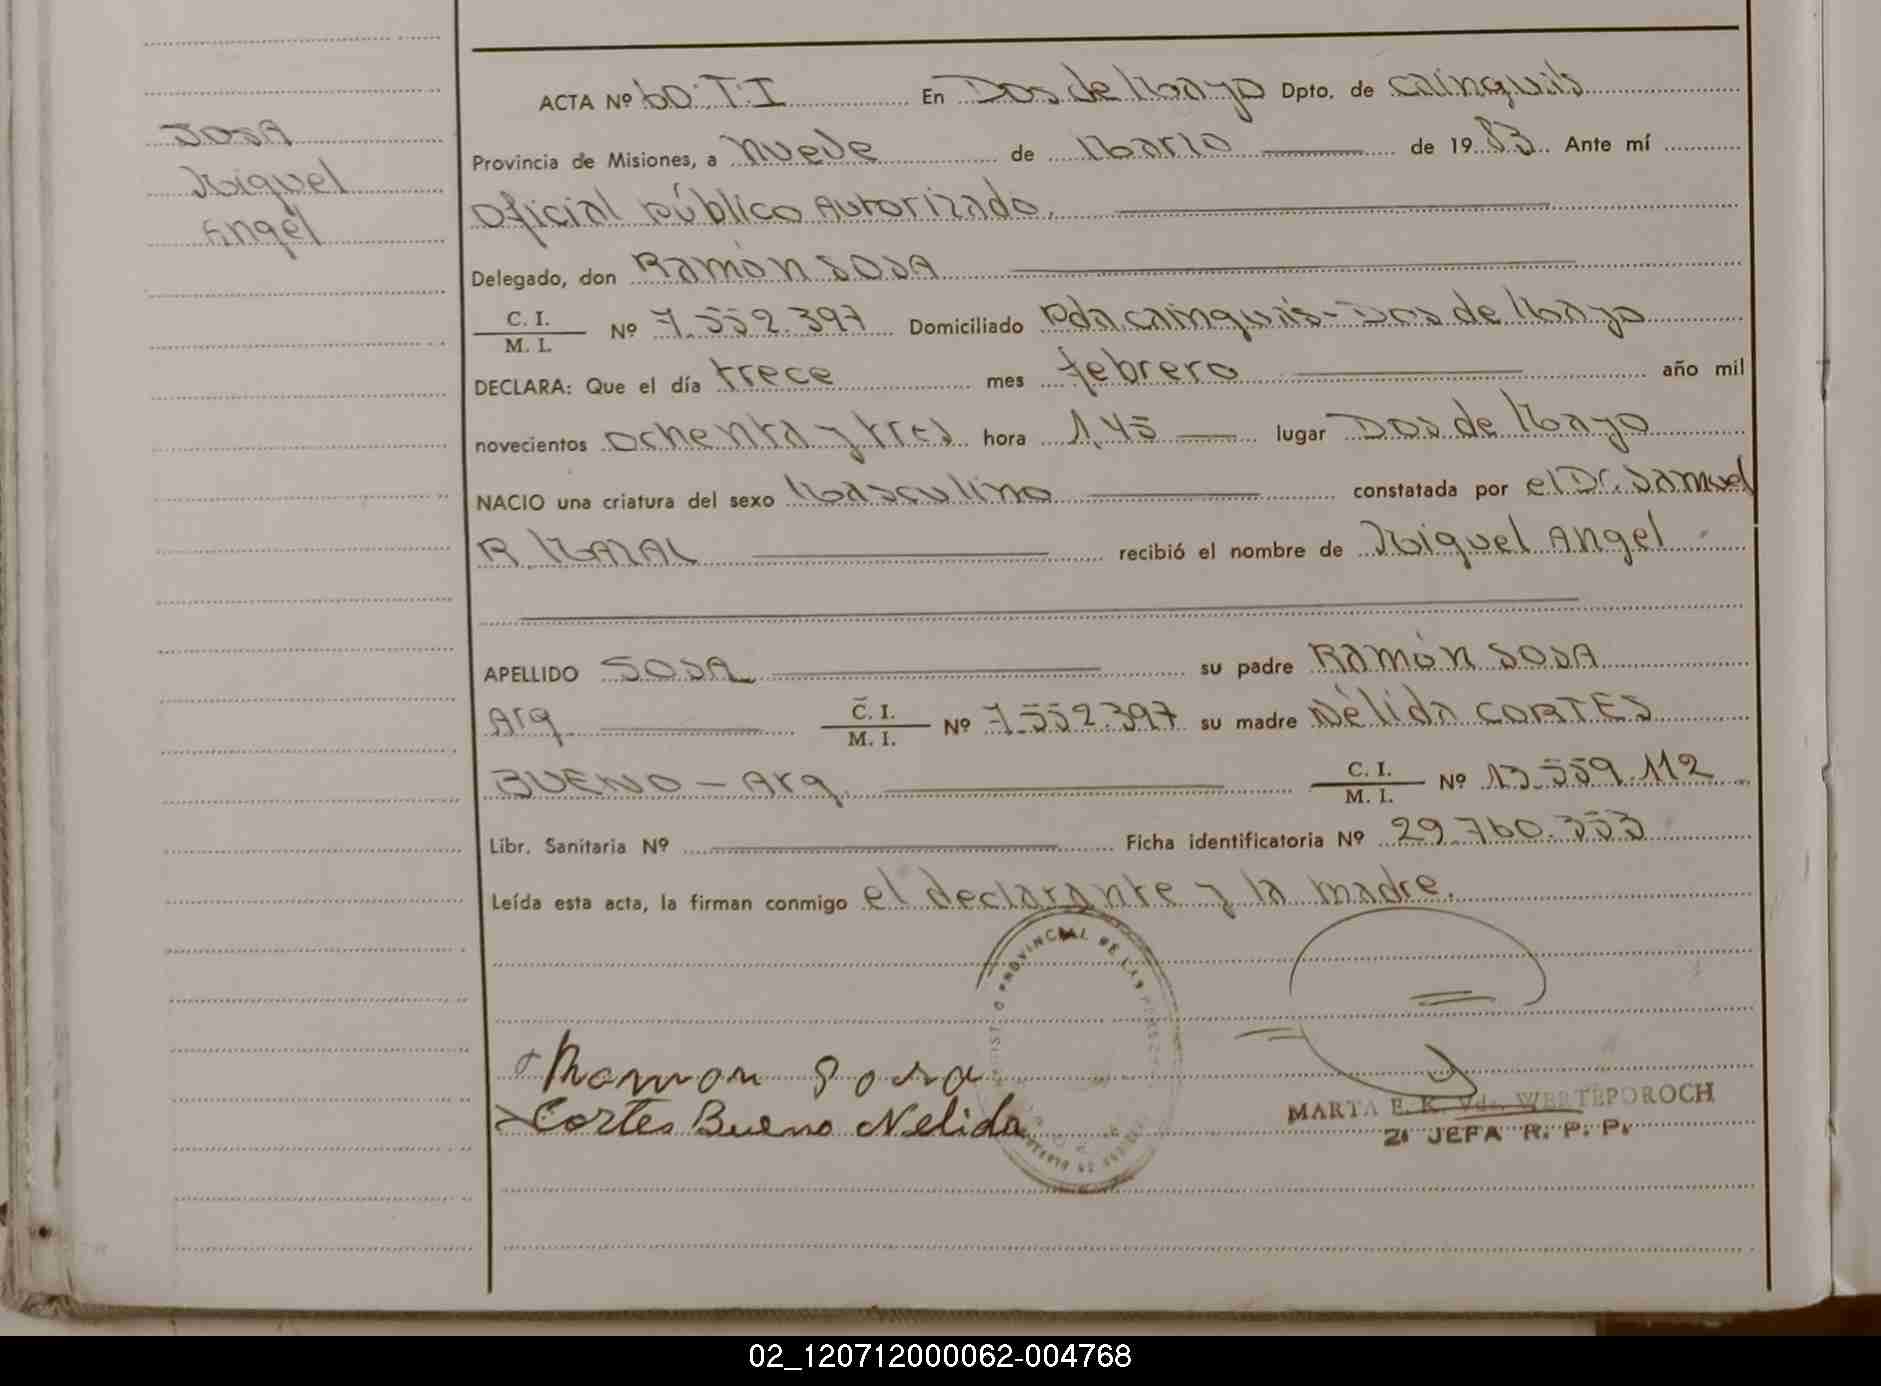 SOSA
Miguel
Angel
ACTA Nº 60.T.I En Dos de Mayo Dpto. de Cainguás
Provincia de Misiones, a nueve de Marzo de 1983 Ante mí
Oficial Público Autorizado.
Delegado, don RAMÓN SOSA
C. I.
M. I. Nº 7.552.397 Domiciliado Pda Cainguás - Dos de Mayo
DECLARA: Que el día trece mes febrero año mil
novecientos ochenta y tres hora 1,45 lugar Dos de Mayo
NACIO una criatura del sexo Masculino constatada por el Dr. Samuel
R. MAZAL recibió el nombre de Miguel Angel
APELLIDO SOSA su padre RAMÓN SOSA
Arg C. I.
M. I. Nº 7.552.397 su madre Nélida CORTES
BUENO - Arg. C. I.
M. I. Nº 13.559.112
Libr. Sanitaria Nº Ficha identificatoria Nº 29.760.353
Leída esta acta, la firman conmigo el declarante y la madre.
PROVINCIAL DE LAS
Ramon Sosa
Cortes Bueno Nelida
MARTA E. K. Vda. WERTEPOROCH
2ª JEFA R. P. P.
02_120712000062-004768